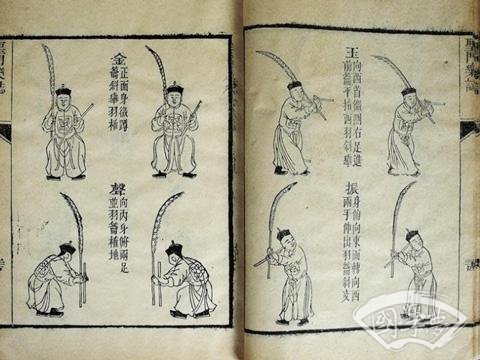 聖門樂誌
玉
向西首微側右足進
前籥平指西羽斜舉
振
身俯向東面轉向西
兩手伸出羽籥斜交
金
正面身微蹲
籥斜舉羽植
聲
向內身俯兩足
並羽籥植地
聖門樂誌
國學夢